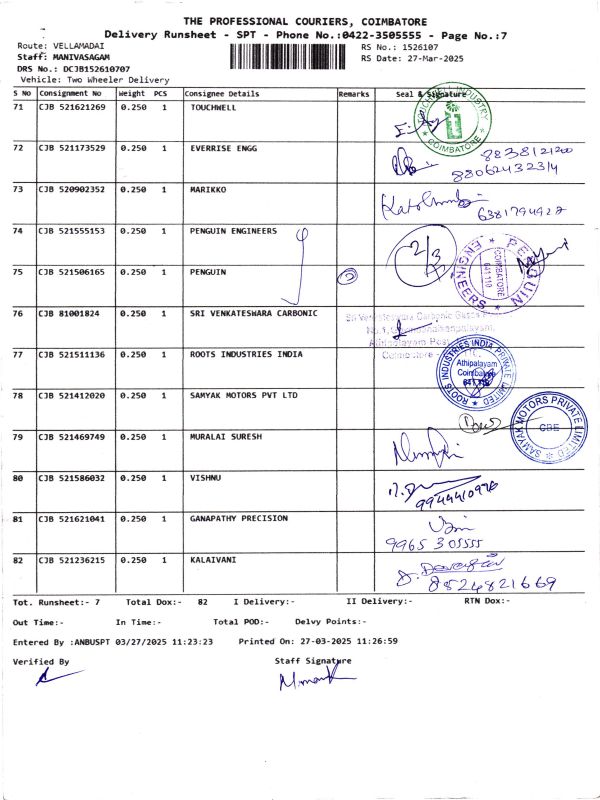 THE PROFESSIONAL COURIERS, COIMBATORE
Delivery Runsheet - SPT - Phone No.:0422-3505555 - Page No.:7
Route: VELLAMADAI RS No.: 1526107
Staff: MANIVASAGAM RS Date: 27-Mar-2025
DRS No.: DCJB152610707
Vehicle: Two Wheeler Delivery
S No Consignment No Weight PCS Consignee Details Remarks Seal & Signature
71 CJB 521621269 0.250 1 TOUCHWELL
TOUCHWELL INDUSTRY * COIMBATORE *
72 CJB 521173529 0.250 1 EVERRISE ENGG
8838121200
8806243 2314
73 CJB 520902352 0.250 1 MARIKKO
6381794922
74 CJB 521555153 0.250 1 PENGUIN ENGINEERS
2/3
PENGUIN ENGINEERS * COIMBATORE 641 110
75 CJB 521506165 0.250 1 PENGUIN 2
76 CJB 81001824 0.250 1 SRI VENKATESWARA CARBONIC
Sri Venkateswara Carbonic Gases
Athipalayam Post
Coimbatore -
77 CJB 521511136 0.250 1 ROOTS INDUSTRIES INDIA
ROOTS INDUSTRIES INDIA PRIVATE LIMITED * Athipalayam Coimbatore 641 110
78 CJB 521412020 0.250 1 SAMYAK MOTORS PVT LTD
SAMYAK MOTORS PRIVATE LIMITED * CBE
79 CJB 521469749 0.250 1 MURALAI SURESH
80 CJB 521586032 0.250 1 VISHNU
9944410976
81 CJB 521621041 0.250 1 GANAPATHY PRECISION
9965305555
82 CJB 521236215 0.250 1 KALAIVANI
8524821669
Tot. Runsheet:- 7 Total Dox:- 82 I Delivery:- II Delivery:- RTN Dox:-
Out Time:- In Time:- Total POD:- Delvy Points:-
Entered By :ANBUSPT 03/27/2025 11:23:23 Printed On: 27-03-2025 11:26:59
Verified By Staff Signature